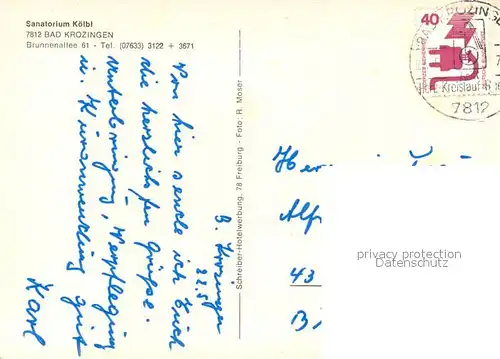 Sanatorium Kölbl
7812 BAD KROZINGEN
Brunnenallee 61 - Tel. (07633) 3122 + 3671
40
7812
Schreiber-Hotelwerbung, 78 Freiburg - Foto: R. Moser
B. Krozingen
22.5
Von hier sende ich Euch
die herzlichsten Grüße.
Unterbringung, Verpflegung
u. Kuranwendung gut
Karl
Alf
43
privacy protection
Datenschutz